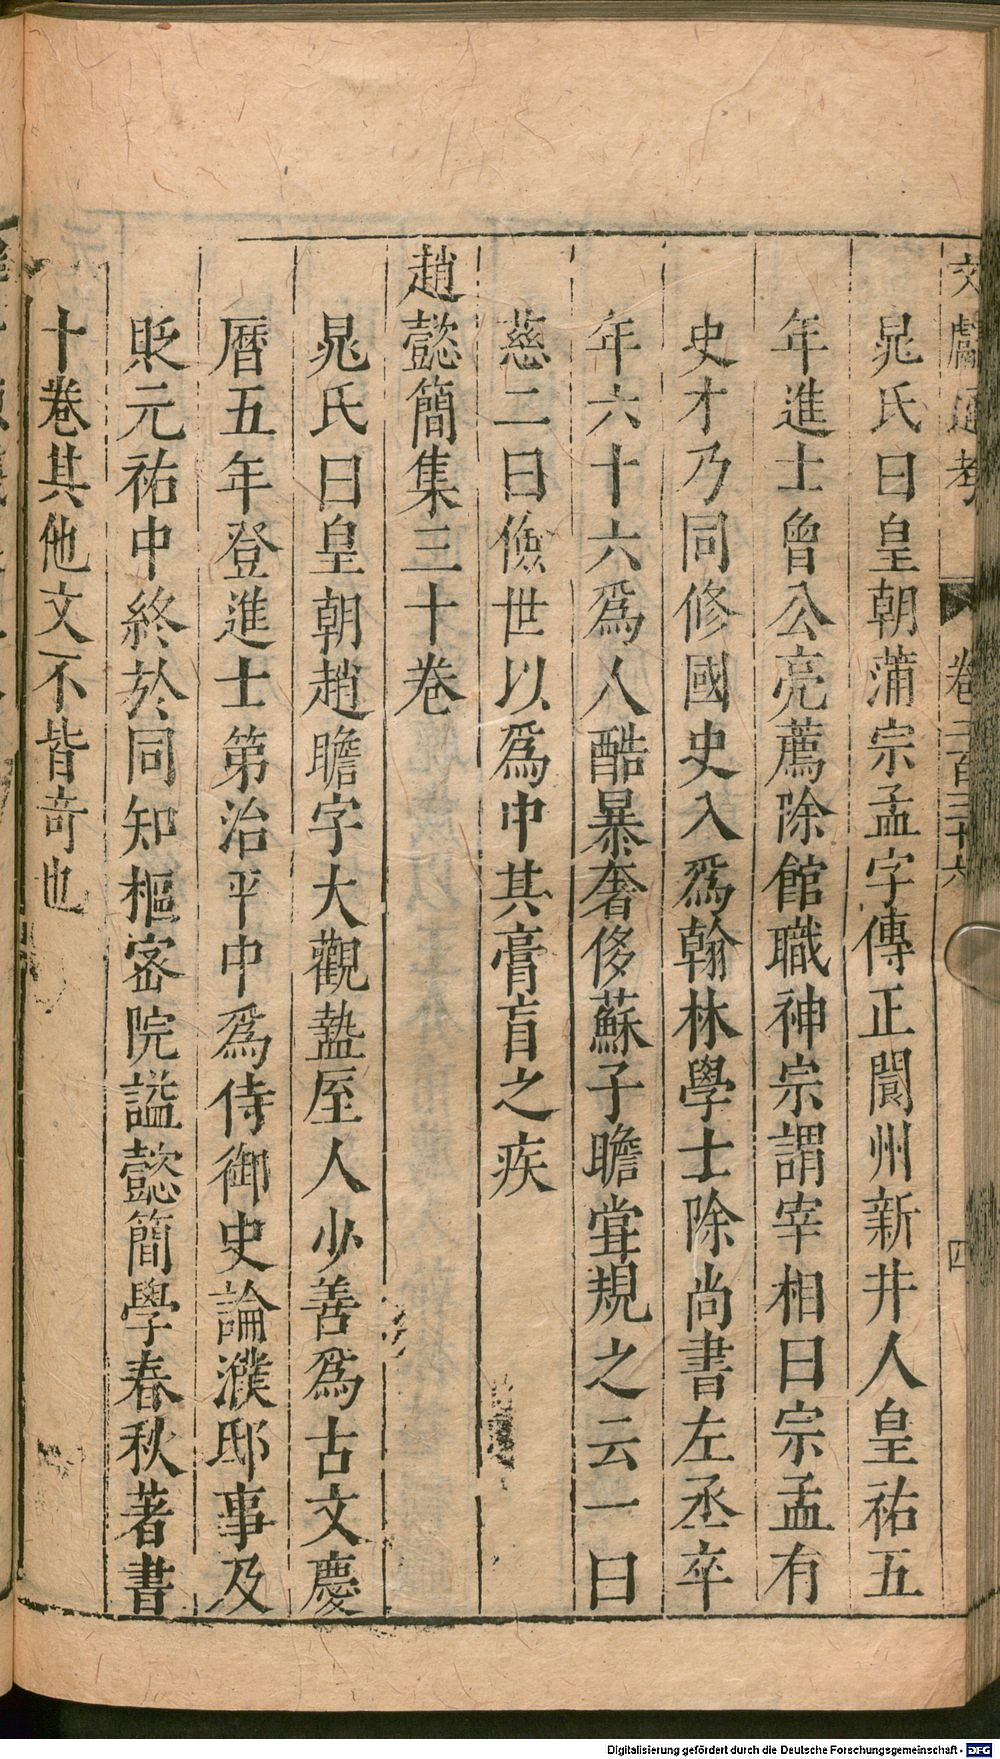 文獻通考 卷二百三十六 四
晁氏曰皇朝蒲宗孟字傳正閬州新井人皇祐五
年進士曾公亮薦除館職神宗謂宰相曰宗孟有
史才乃同修國史入爲翰林學士除尚書左丞卒
年六十六爲人酷暴奢侈蘇子瞻甞規之云一曰
慈二曰儉世以爲中其膏肓之疾
趙懿簡集三十卷
晁氏曰皇朝趙瞻字大觀盩厔人少善爲古文慶
曆五年登進士第治平中爲侍御史論濮邸事及
貶元祐中終於同知樞宻院謚懿簡學春秋著書
十卷其他文不皆竒也
Digitalisierung gefördert durch die Deutsche Forschungsgemeinschaft - DFG